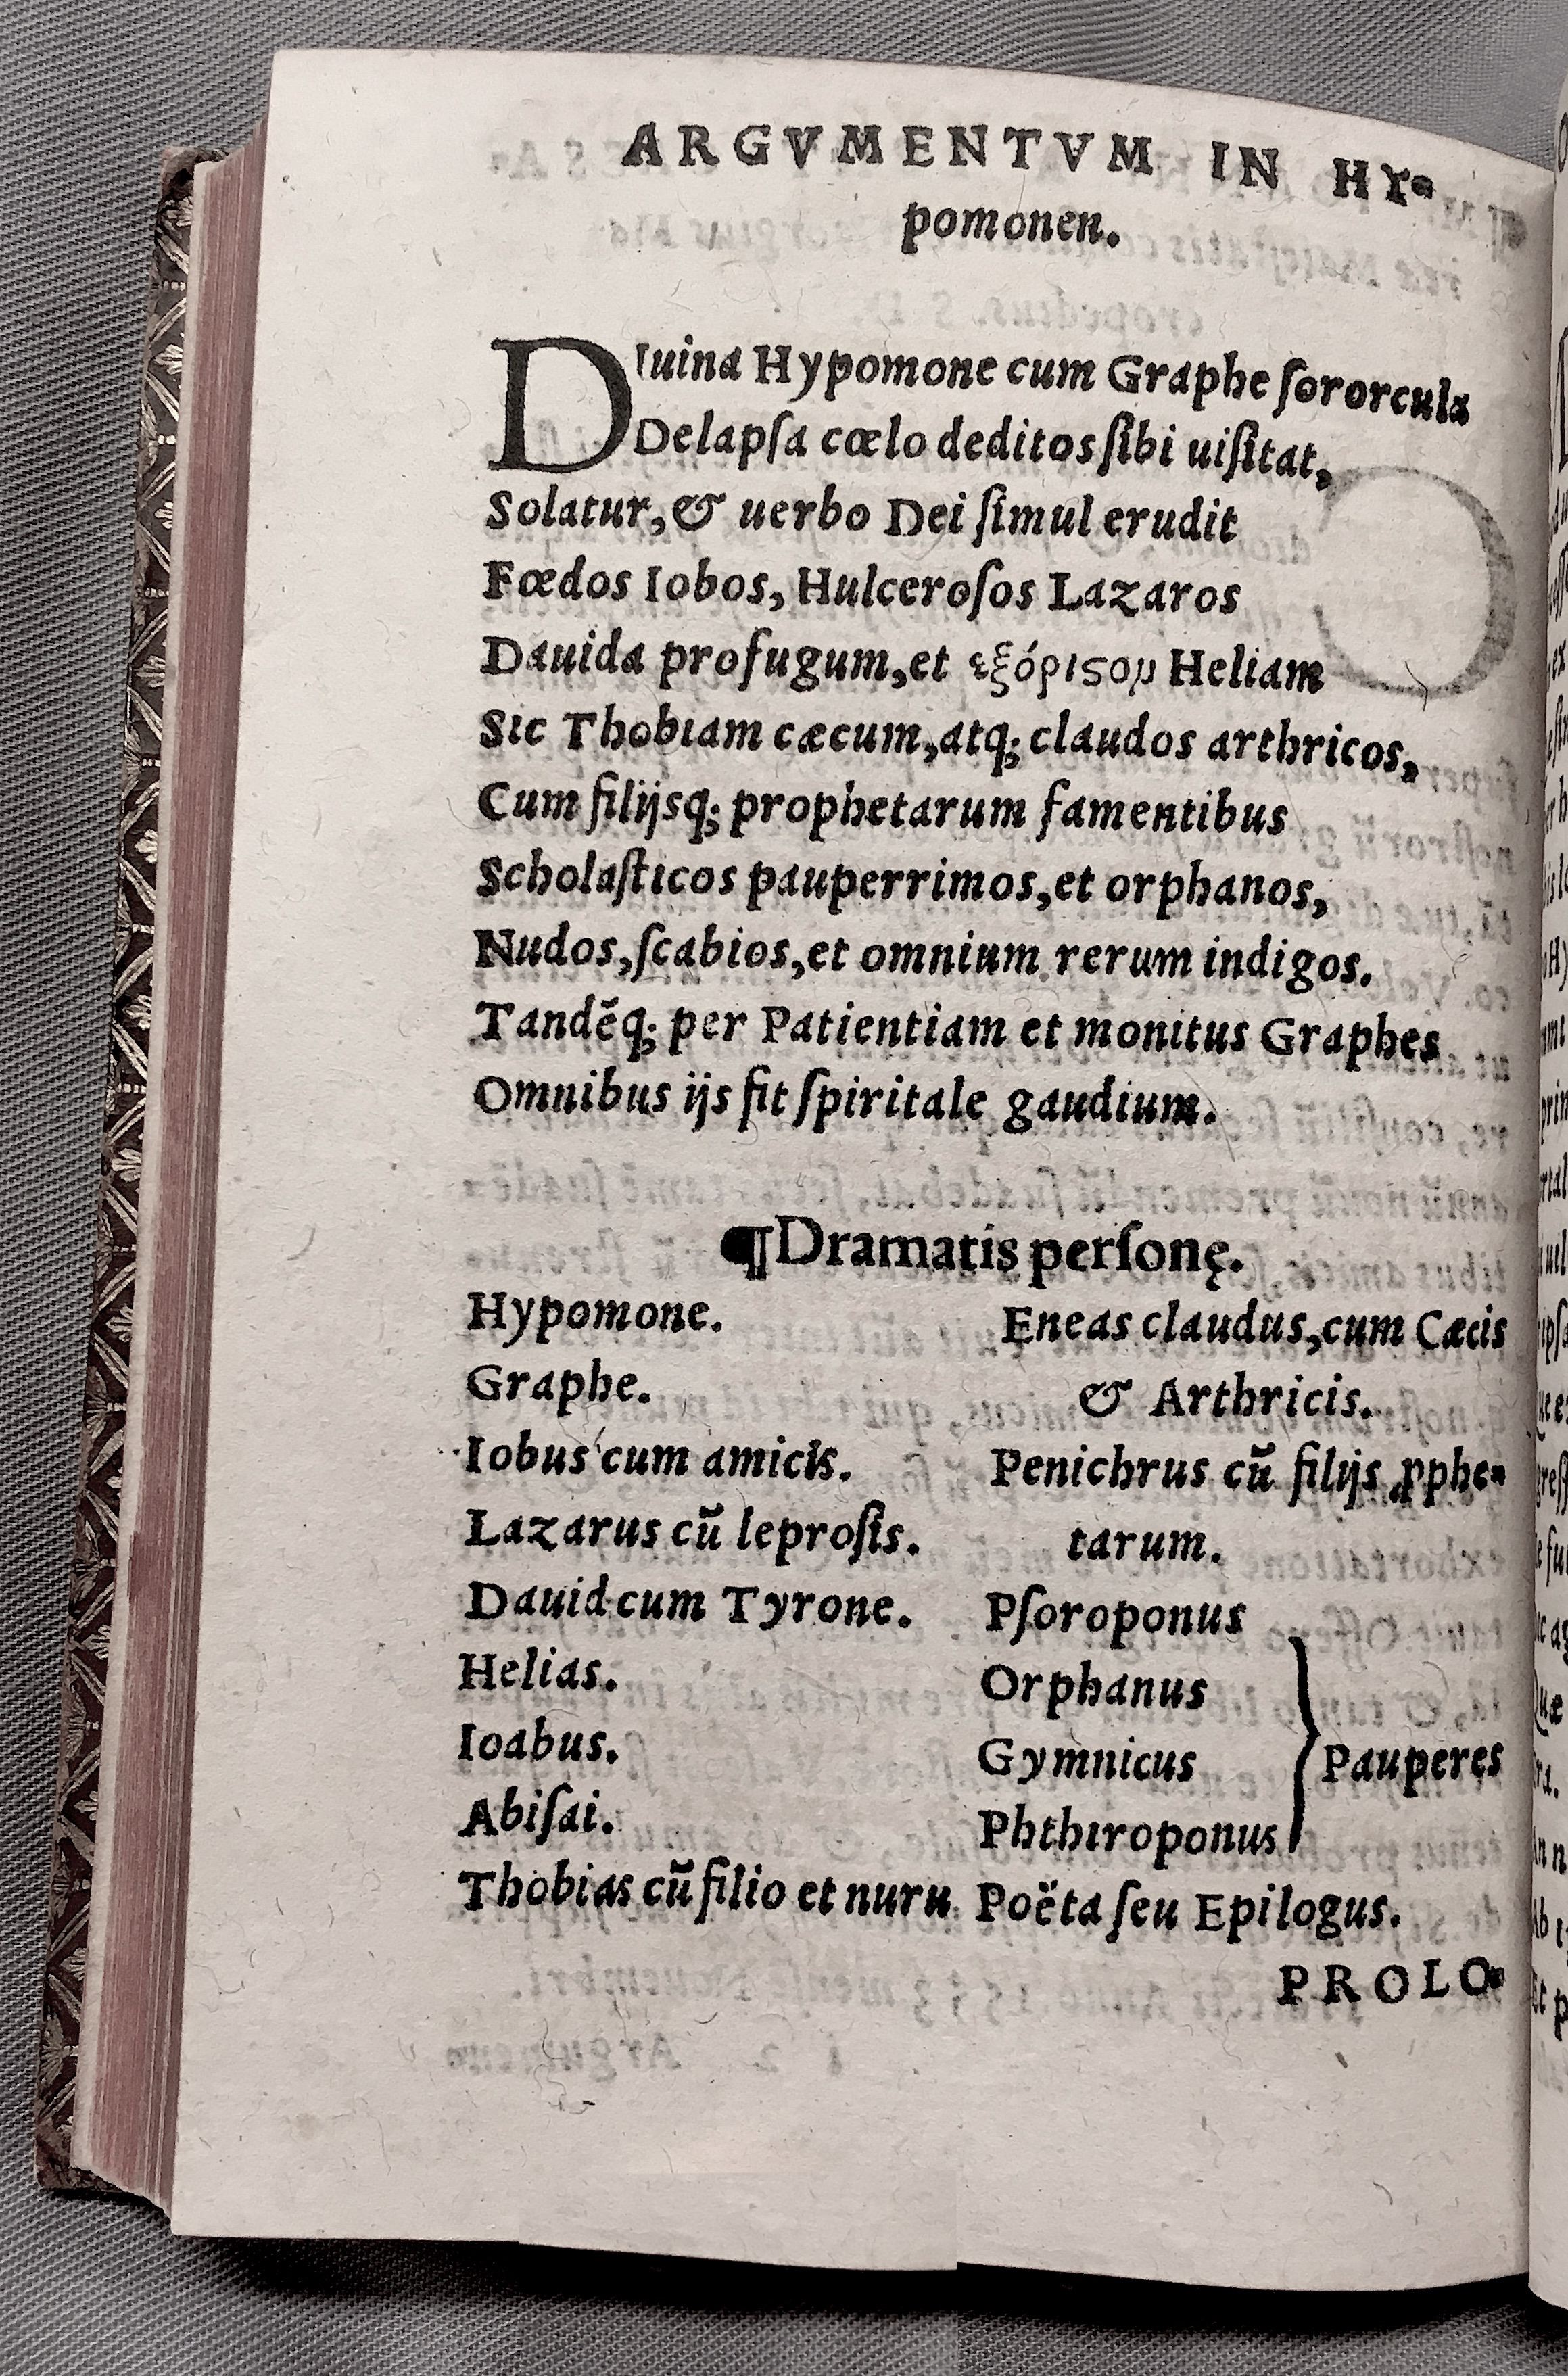 ARGVMENTVM IN HY-
pomonen.
DIuina Hypomone cum Graphe ſororcula
Delapſa cœlo deditos ſibi uiſitat,
Solatur, & uerbo Dei ſimul erudit
Fœdos Iobos, Hulceroſos Lazaros
Dauida profugum, et εξόριςον Heliam
Sic Thobiam cæcum, atq; claudos arthricos,
Cum filijsq; prophetarum famentibus
Scholaſticos pauperrimos, et orphanos,
Nudos, ſcabios, et omnium rerum indigos.
Tandēq; per Patientiam et monitus Graphes
Omnibus ijs fit ſpiritale gaudium.
¶Dramatis perſonę.
Hypomone.
Graphe.
Iobus cum amicis.
Lazarus cū leproſis.
Dauid cum Tyrone.
Helias.
Ioabus.
Abiſai.
Thobias cū filio et nuru
Eneas claudus, cum Cæcis
& Arthricis.
Penichrus cū filijs ꝓphe-
tarum.
Pſoroponus
Orphanus
Gymnicus
Phthiroponus
Pauperes
Poëta ſeu Epilogus.
PROLO-